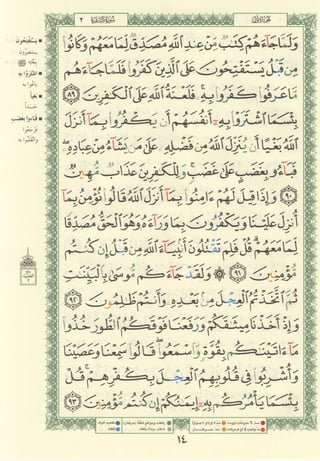 سُورَةُ البَقَرَةِ ٢
وَلَمَّا جَآءَهُمْ كِتَٰبٌ مِّنْ عِندِ ٱللَّهِ مُصَدِّقٌ لِّمَا مَعَهُمْ وَكَانُوا۟
مِن قَبْلُ يَسْتَفْتِحُونَ عَلَى ٱلَّذِينَ كَفَرُوا۟ فَلَمَّا جَآءَهُم
مَّا عَرَفُوا۟ كَفَرُوا۟ بِهِۦ ۚ فَلَعْنَةُ ٱللَّهِ عَلَى ٱلْكَٰفِرِينَ ٨٩
بِئْسَمَا ٱشْتَرَوْا۟ بِهِۦٓ أَنفُسَهُمْ أَن يَكْفُرُوا۟ بِمَآ أَنزَلَ
ٱللَّهُ بَغْيًا أَن يُنَزِّلَ ٱللَّهُ مِن فَضْلِهِۦ عَلَىٰ مَن يَشَآءُ مِنْ عِبَادِهِۦ ۖ
فَبَآءُو بِغَضَبٍ عَلَىٰ غَضَبٍ ۚ وَلِلْكَٰفِرِينَ عَذَابٌ مُّهِينٌ
٩٠ وَإِذَا قِيلَ لَهُمْ ءَامِنُوا۟ بِمَآ أَنزَلَ ٱللَّهُ قَالُوا۟ نُؤْمِنُ بِمَآ
أُنزِلَ عَلَيْنَا وَيَكْفُرُونَ بِمَا وَرَآءَهُۥ وَهُوَ ٱلْحَقُّ مُصَدِّقًا
لِّمَا مَعَهُمْ ۗ قُلْ فَلِمَ تَقْتُلُونَ أَنۢبِيَآءَ ٱللَّهِ مِن قَبْلُ إِن كُنتُم
مُّؤْمِنِينَ ٩١ ۞ وَلَقَدْ جَآءَكُم مُّوسَىٰ بِٱلْبَيِّنَٰتِ
ثُمَّ ٱتَّخَذْتُمُ ٱلْعِجْلَ مِنۢ بَعْدِهِۦ وَأَنتُمْ ظَٰلِمُونَ ٩٢
وَإِذْ أَخَذْنَا مِيثَٰقَكُمْ وَرَفَعْنَا فَوْقَكُمُ ٱلطُّورَ خُذُوا۟
مَآ ءَاتَيْنَٰكُم بِقُوَّةٍ وَٱسْمَعُوا۟ ۖ قَالُوا۟ سَمِعْنَا وَعَصَيْنَا
وَأُشْرِبُوا۟ فِى قُلُوبِهِمُ ٱلْعِجْلَ بِكُفْرِهِمْ ۚ قُلْ
بِئْسَمَا يَأْمُرُكُم بِهِۦٓ إِيمَٰنُكُمْ إِن كُنتُم مُّؤْمِنِينَ ٩٣
١٤